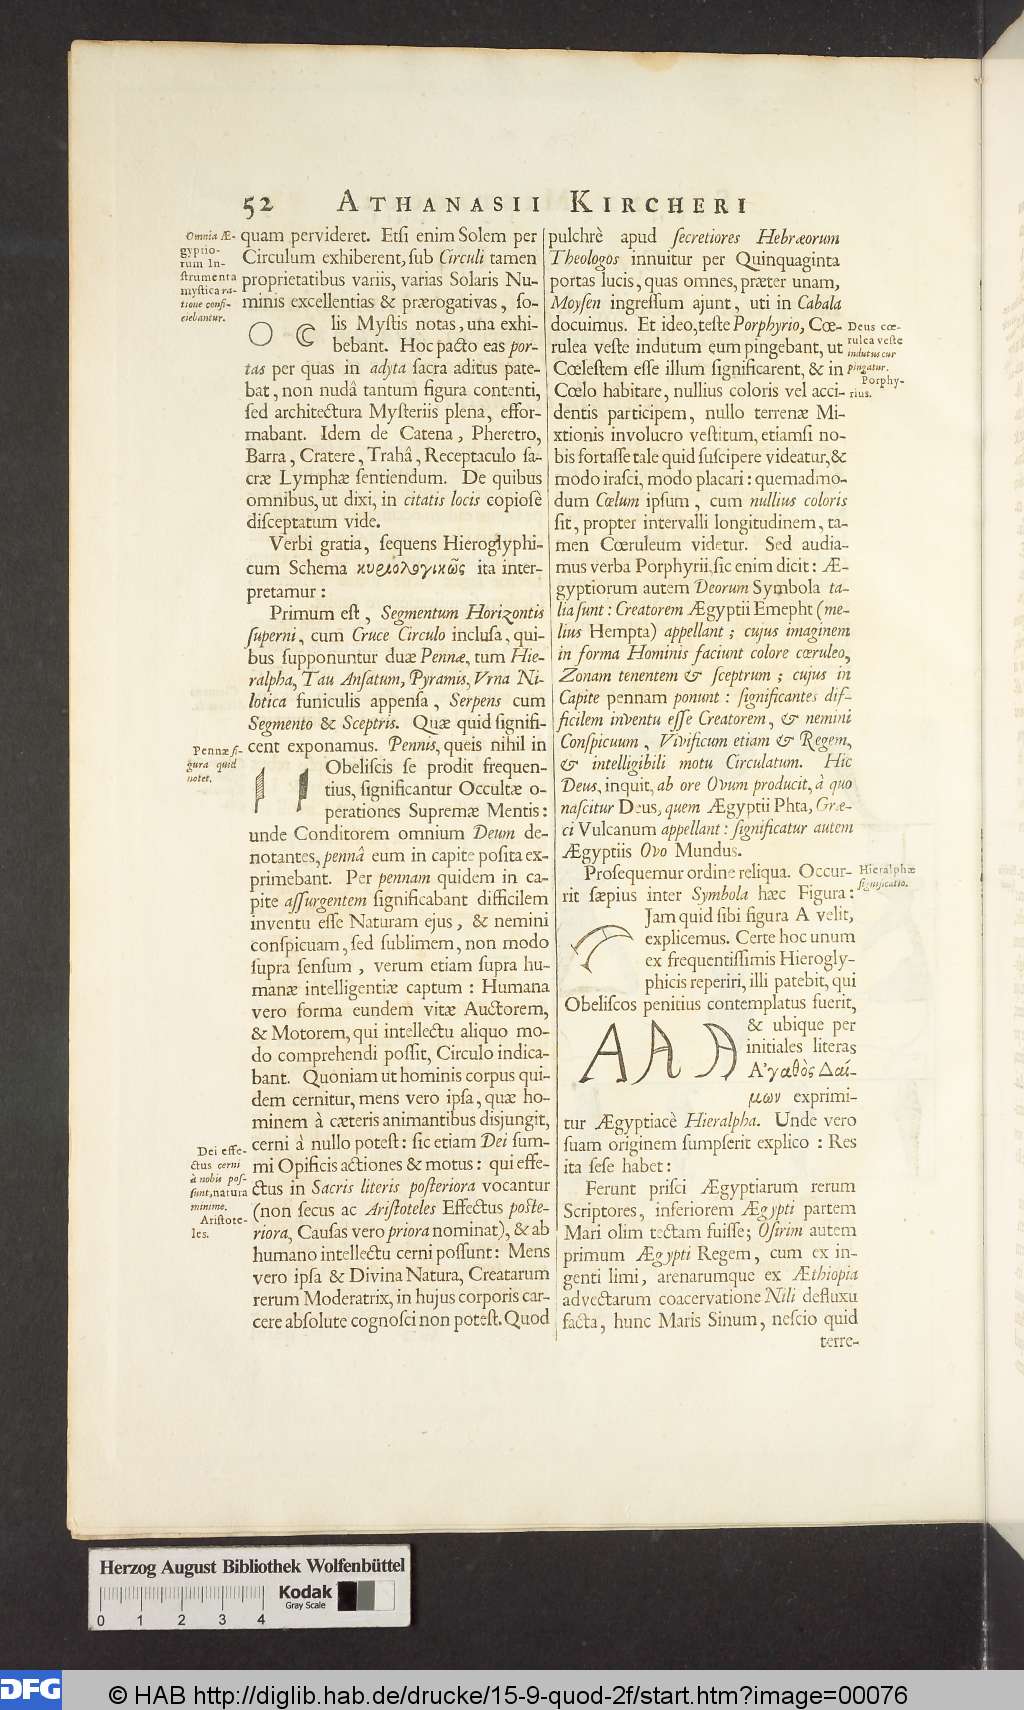 52 ATHANASII KIRCHERI
Omnia Æ-
gyptio-
rum In-
ſtrumenta
myſtica ra-
tione confi-
ciebantur.
quam pervideret. Etſi enim Solem per
Circulum exhiberent, ſub Circuli tamen
proprietatibus variis, varias Solaris Nu-
minis excellentias & prærogativas, ſo-
lis Myſtis notas, una exhi-
bebant. Hoc pacto eas por-
tas per quas in adyta ſacra aditus pate-
bat, non nudâ tantum figura contenti,
ſed architectura Myſteriis plena, effor-
mabant. Idem de Catena, Pheretro,
Barra, Cratere, Trahâ, Receptaculo ſa-
cræ Lymphæ ſentiendum. De quibus
omnibus, ut dixi, in citatis locis copiosè
diſceptatum vide.
Verbi gratia, ſequens Hieroglyphi-
cum Schema κυριολογικῶς ita inter-
pretamur:
Primum eſt, Segmentum Horizontis
ſuperni, cum Cruce Circulo incluſa, qui-
bus ſupponuntur duæ Pennæ, tum Hie-
ralpha, Tau Anſatum, Pyramis, Vrna Ni-
lotica funiculis appenſa, Serpens cum
Segmento & Sceptris. Quæ quid ſignifi-
cent exponamus. Pennis, queis nihil in
Pennæ fi-
gura quid
notet.
Obeliſcis ſe prodit frequen-
tius, ſignificantur Occultæ o-
perationes Supremæ Mentis:
unde Conditorem omnium Deum de-
notantes, pennâ eum in capite poſita ex-
primebant. Per pennam quidem in ca-
pite aſſurgentem ſignificabant difficilem
inventu eſſe Naturam ejus, & nemini
conſpicuam, ſed ſublimem, non modo
ſupra ſenſum, verum etiam ſupra hu-
manæ intelligentiæ captum: Humana
vero forma eundem vitæ Auctorem,
& Motorem, qui intellectu aliquo mo-
do comprehendi poſſit, Circulo indica-
bant. Quoniam ut hominis corpus qui-
dem cernitur, mens vero ipſa, quæ ho-
minem à cæteris animantibus disjungit,
cerni à nullo poteſt: ſic etiam Dei ſum-
mi Opificis actiones & motus: qui effe-
ctus in Sacris literis poſteriora vocantur
(non ſecus ac Ariſtoteles Effectus poſte-
riora, Cauſas vero priora nominat), & ab
humano intellectu cerni poſſunt: Mens
vero ipſa & Divina Natura, Creatarum
rerum Moderatrix, in hujus corporis car-
cere abſolute cognoſci non poteſt. Quod
Dei effe-
ctus cerni
à nobis poſ-
ſunt, natura
minime.
Ariſtote-
les.
pulchrè apud ſecretiores Hebræorum
Theologos innuitur per Quinquaginta
portas lucis, quas omnes, præter unam,
Moyſen ingreſſum ajunt, uti in Cabala
docuimus. Et ideo, teſte Porphyrio, Cœ-
rulea veſte indutum eum pingebant, ut
Cœleſtem eſſe illum ſignificarent, & in
Cœlo habitare, nullius coloris vel acci-
dentis participem, nullo terrenæ Mi-
xtionis involucro veſtitum, etiamſi no-
bis fortaſſe tale quid ſuſcipere videatur, &
modo iraſci, modo placari: quemadmo-
dum Cœlum ipſum, cum nullius coloris
ſit, propter intervalli longitudinem, ta-
men Cœruleum videtur. Sed audia-
mus verba Porphyrii, ſic enim dicit: Æ-
gyptiorum autem Deorum Symbola ta-
lia ſunt: Creatorem Ægyptii Emepht (me-
lius Hempta) appellant; cujus imaginem
in forma Hominis faciunt colore cœruleo,
Zonam tenentem & ſceptrum; cujus in
Capite pennam ponunt: ſignificantes dif-
ficilem inventu eſſe Creatorem, & nemini
Conſpicuum, Vivificum etiam & Regem,
& intelligibili motu Circulatum. Hic
Deus, inquit, ab ore Ovum producit, à quo
naſcitur Deus, quem Ægyptii Phta, Græ-
ci Vulcanum appellant: ſignificatur autem
Ægyptiis Ovo Mundus.
Deus cœ-
rulea veſte
indutus cur
pingatur.
Porphy-
rius.
Proſequemur ordine reliqua. Occur-
rit ſæpius inter Symbola hæc Figura:
Hieralphæ
ſignificatio.
Jam quid ſibi figura A velit,
explicemus. Certe hoc unum
ex frequentiſſimis Hierogly-
phicis reperiri, illi patebit, qui
Obeliſcos penitius contemplatus fuerit,
& ubique per
initiales literas
Α᾽γαθὸς Δαί-
μων exprimi-
tur Ægyptiacè Hieralpha. Unde vero
ſuam originem ſumpſerit explico: Res
ita ſeſe habet:
Ferunt priſci Ægyptiarum rerum
Scriptores, inferiorem Ægypti partem
Mari olim tectam fuiſſe; Oſirim autem
primum Ægypti Regem, cum ex in-
genti limi, arenarumque ex Æthiopia
advectarum coacervatione Nili defluxu
facta, hunc Maris Sinum, neſcio quid
terre-
Herzog August Bibliothek Wolfenbüttel
Kodak
Gray Scale
0 1 2 3 4
DFG © HAB http://diglib.hab.de/drucke/15-9-quod-2f/start.htm?image=00076